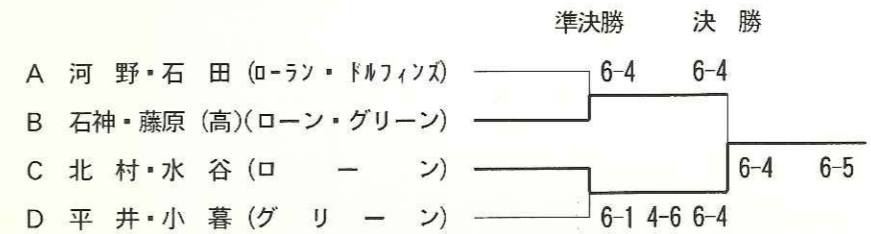 準決勝 決 勝
A 河 野・石 田 (ローラン・ ドルフィンズ) 6-4 6-4
B 石神・藤原 (高)(ローン・グリーン)
C 北 村・水 谷 (ロ ー ン) 6-4 6-5
D 平 井・小 暮 (グ リ ー ン) 6-1 4-6 6-4